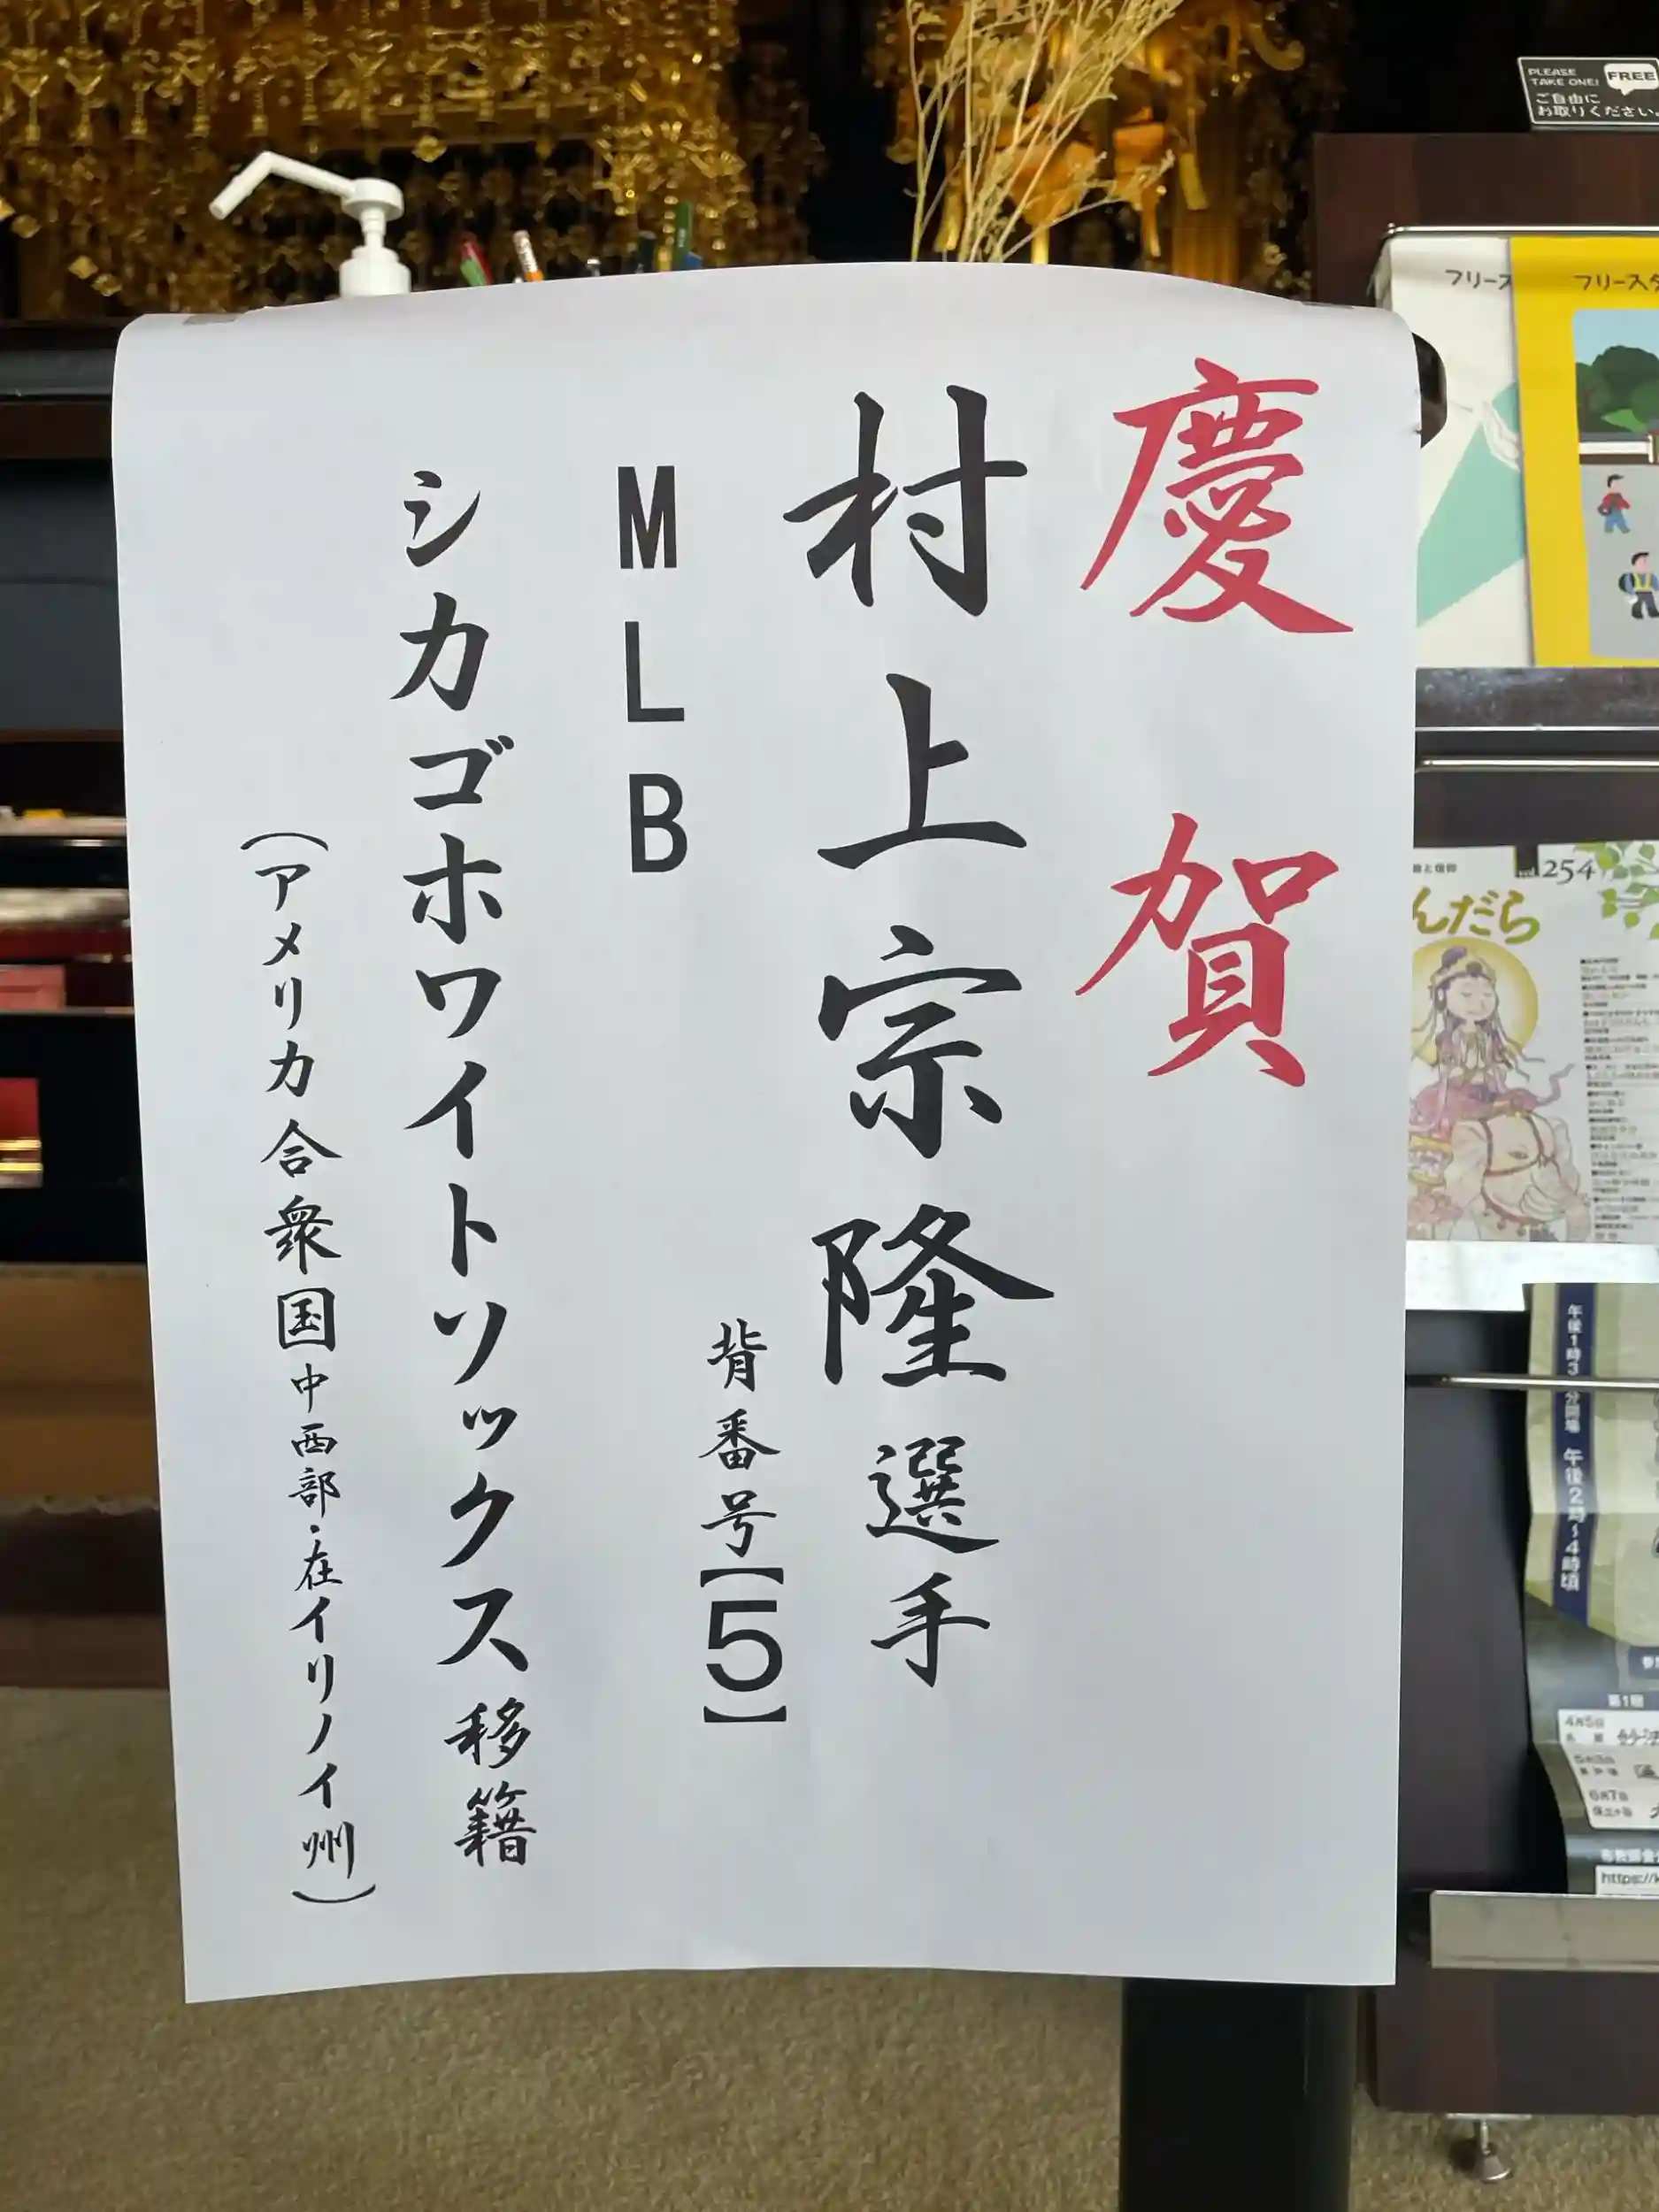 慶賀
村上宗隆選手
背番号【5】
MLB
シカゴホワイトソックス移籍
(アメリカ合衆国中西部・在イリノイ州)
PLEASE TAKE ONE!
FREE
ご自由に
お取りください。
フリース
フリースタ
vol.254
んだら
午後1時3 分開場 午後2時～4時頃
第1回
4月5日
5月3日
6月7日
https://k